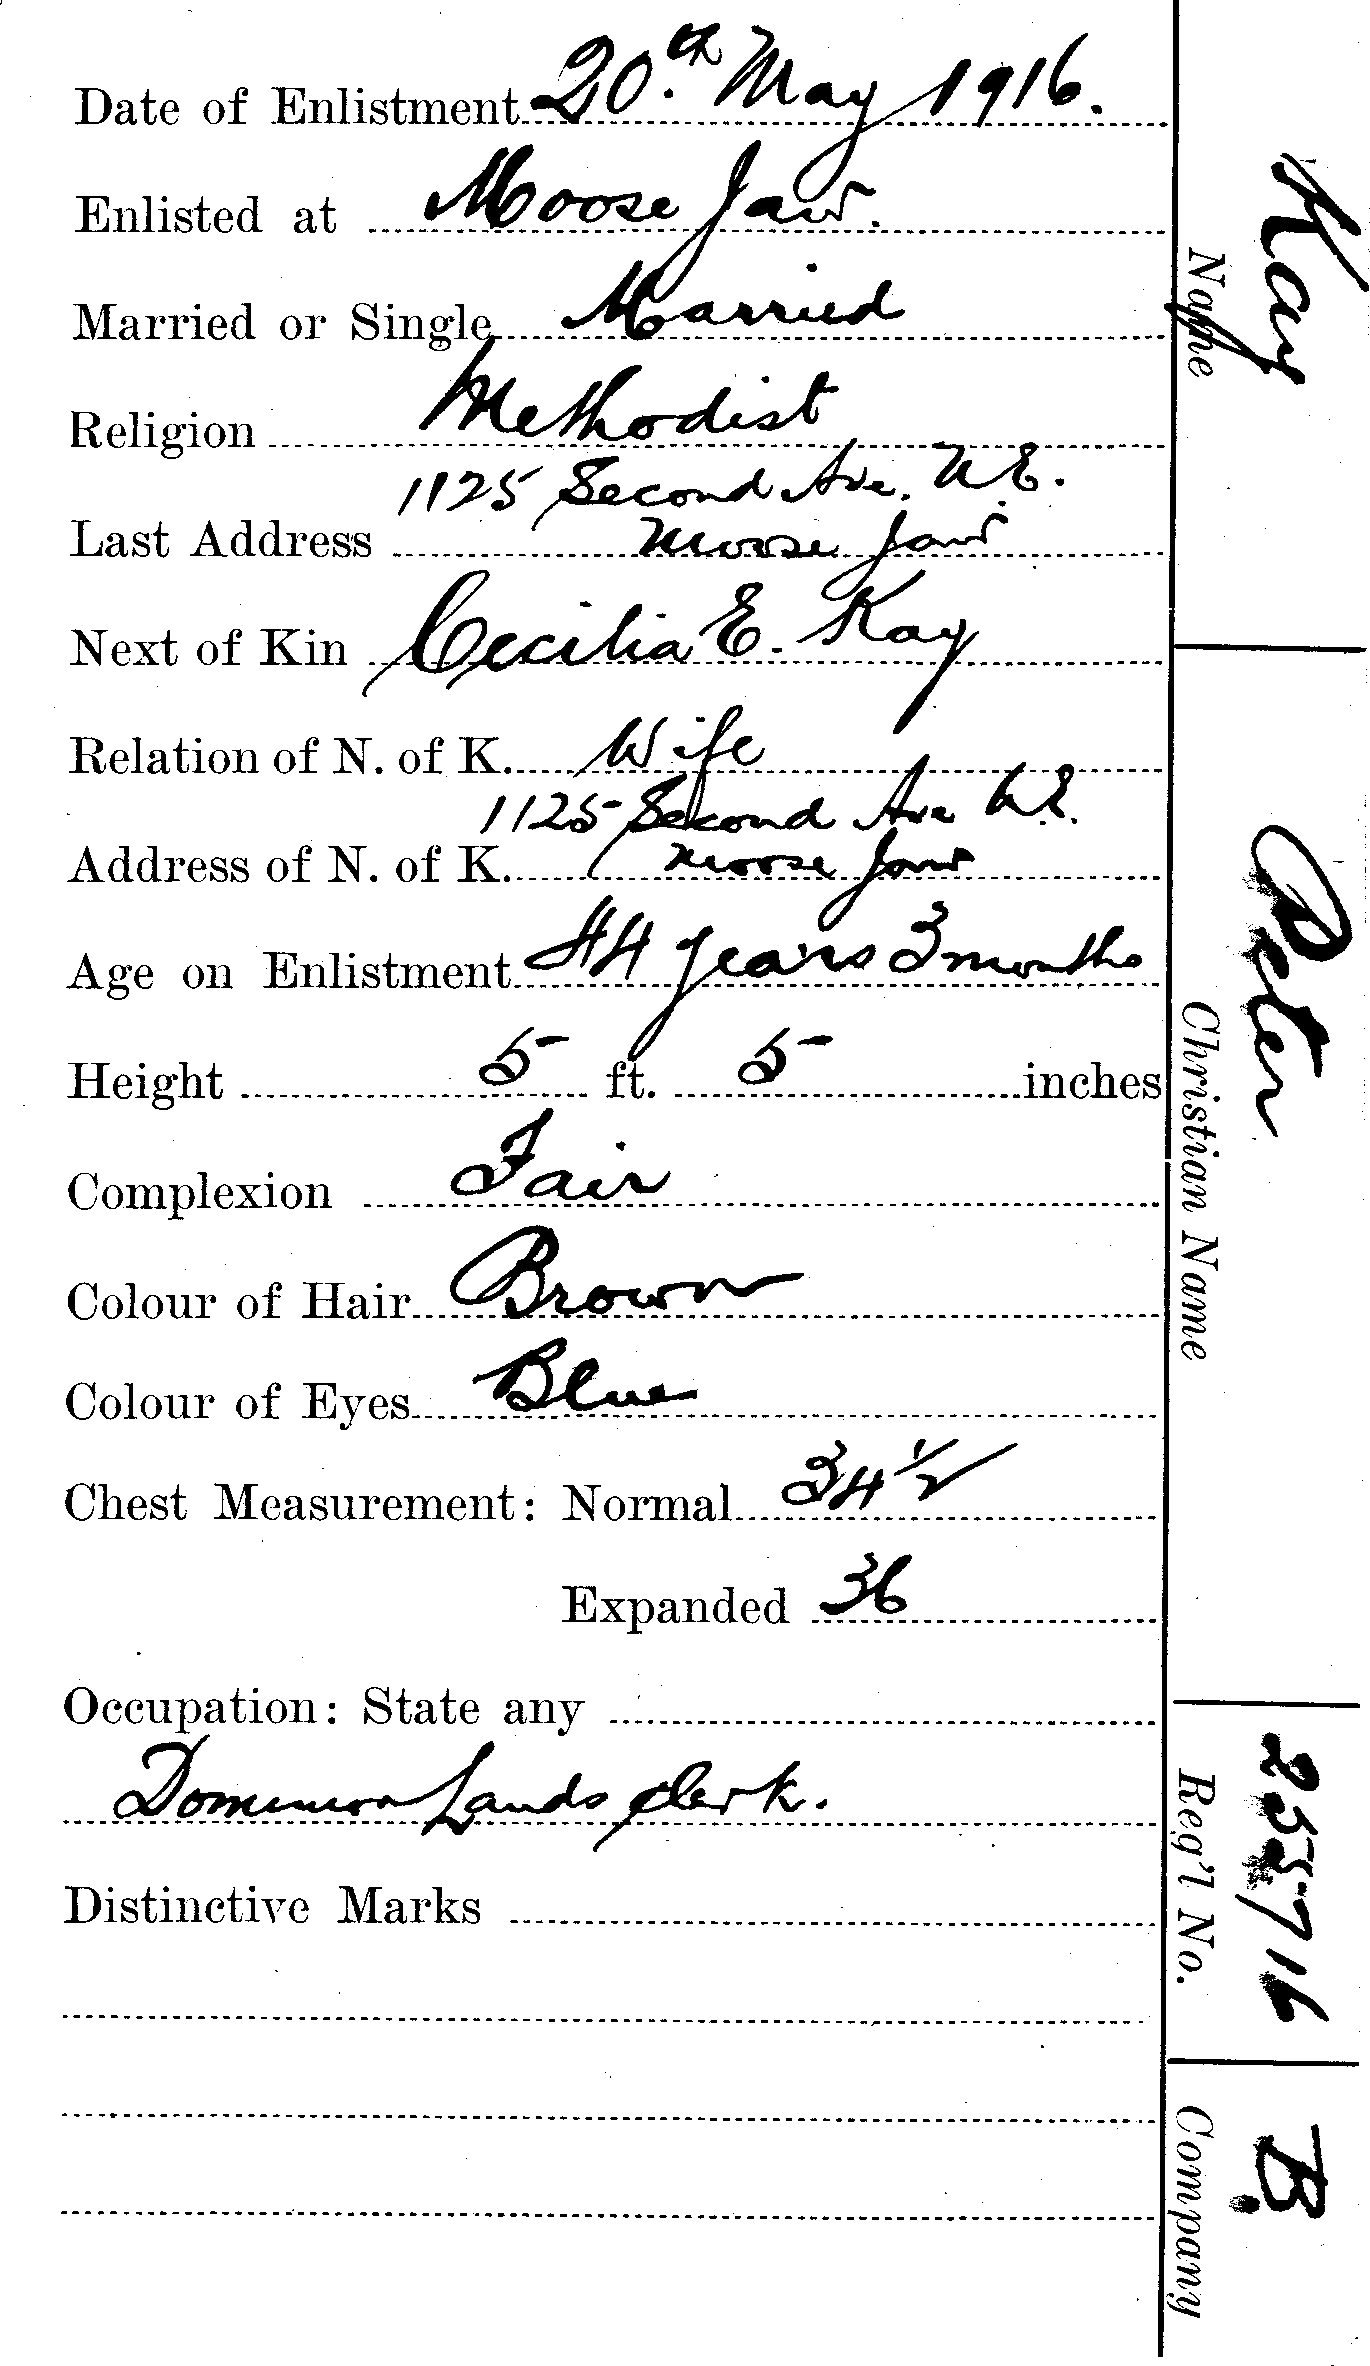 Date of Enlistment 20th. May 1916.
Enlisted at Moose Jaw.
Married or Single Married
Religion Methodist
1125 Second Ave. N.E.
Last Address Moose Jaw
Next of Kin Cecilia E. Kay
Relation of N. of K. Wife
1125 Second Ave N.E.
Address of N. of K. Moose Jaw
Age on Enlistment 44 years 3 months
Height 5 ft. 5 inches
Complexion Fair
Colour of Hair Brown
Colour of Eyes Blue
Chest Measurement: Normal 34 1/2
Expanded 36
Occupation: State any
Dominion Lands Clerk.
Distinctive Marks
Kay
Name
Peter
Christian Name
255716
Reg'l No.
B.
Company